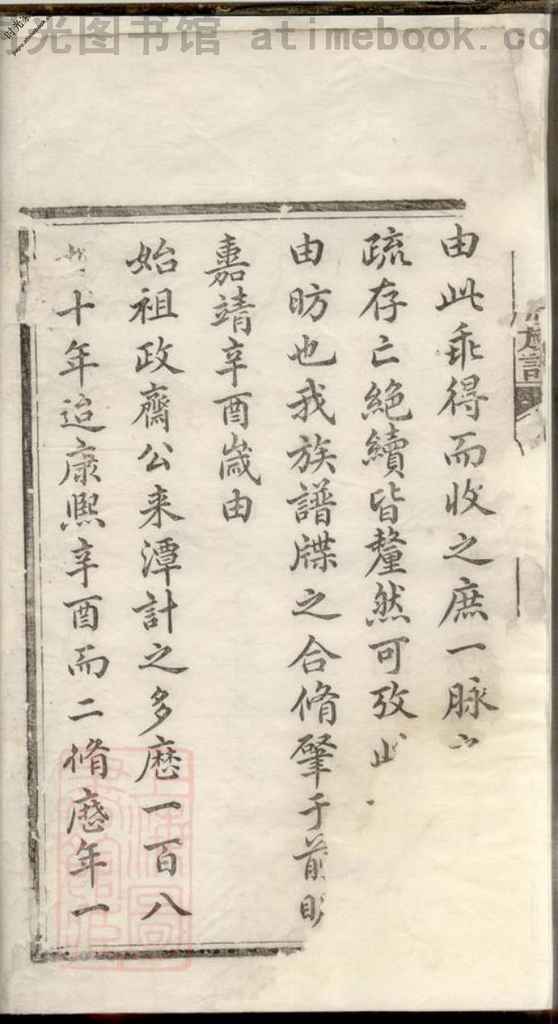 时光图书馆 atimebook.co
族譜
由此乖得而收之庶一脉
疏存亡絶續皆釐然可攷此
由昉也我族譜牒之合脩肇于前明
嘉靖辛酉歲由
始祖政齋公来潭計之多歷一百八
十年迨康熙辛酉而二脩歷年一